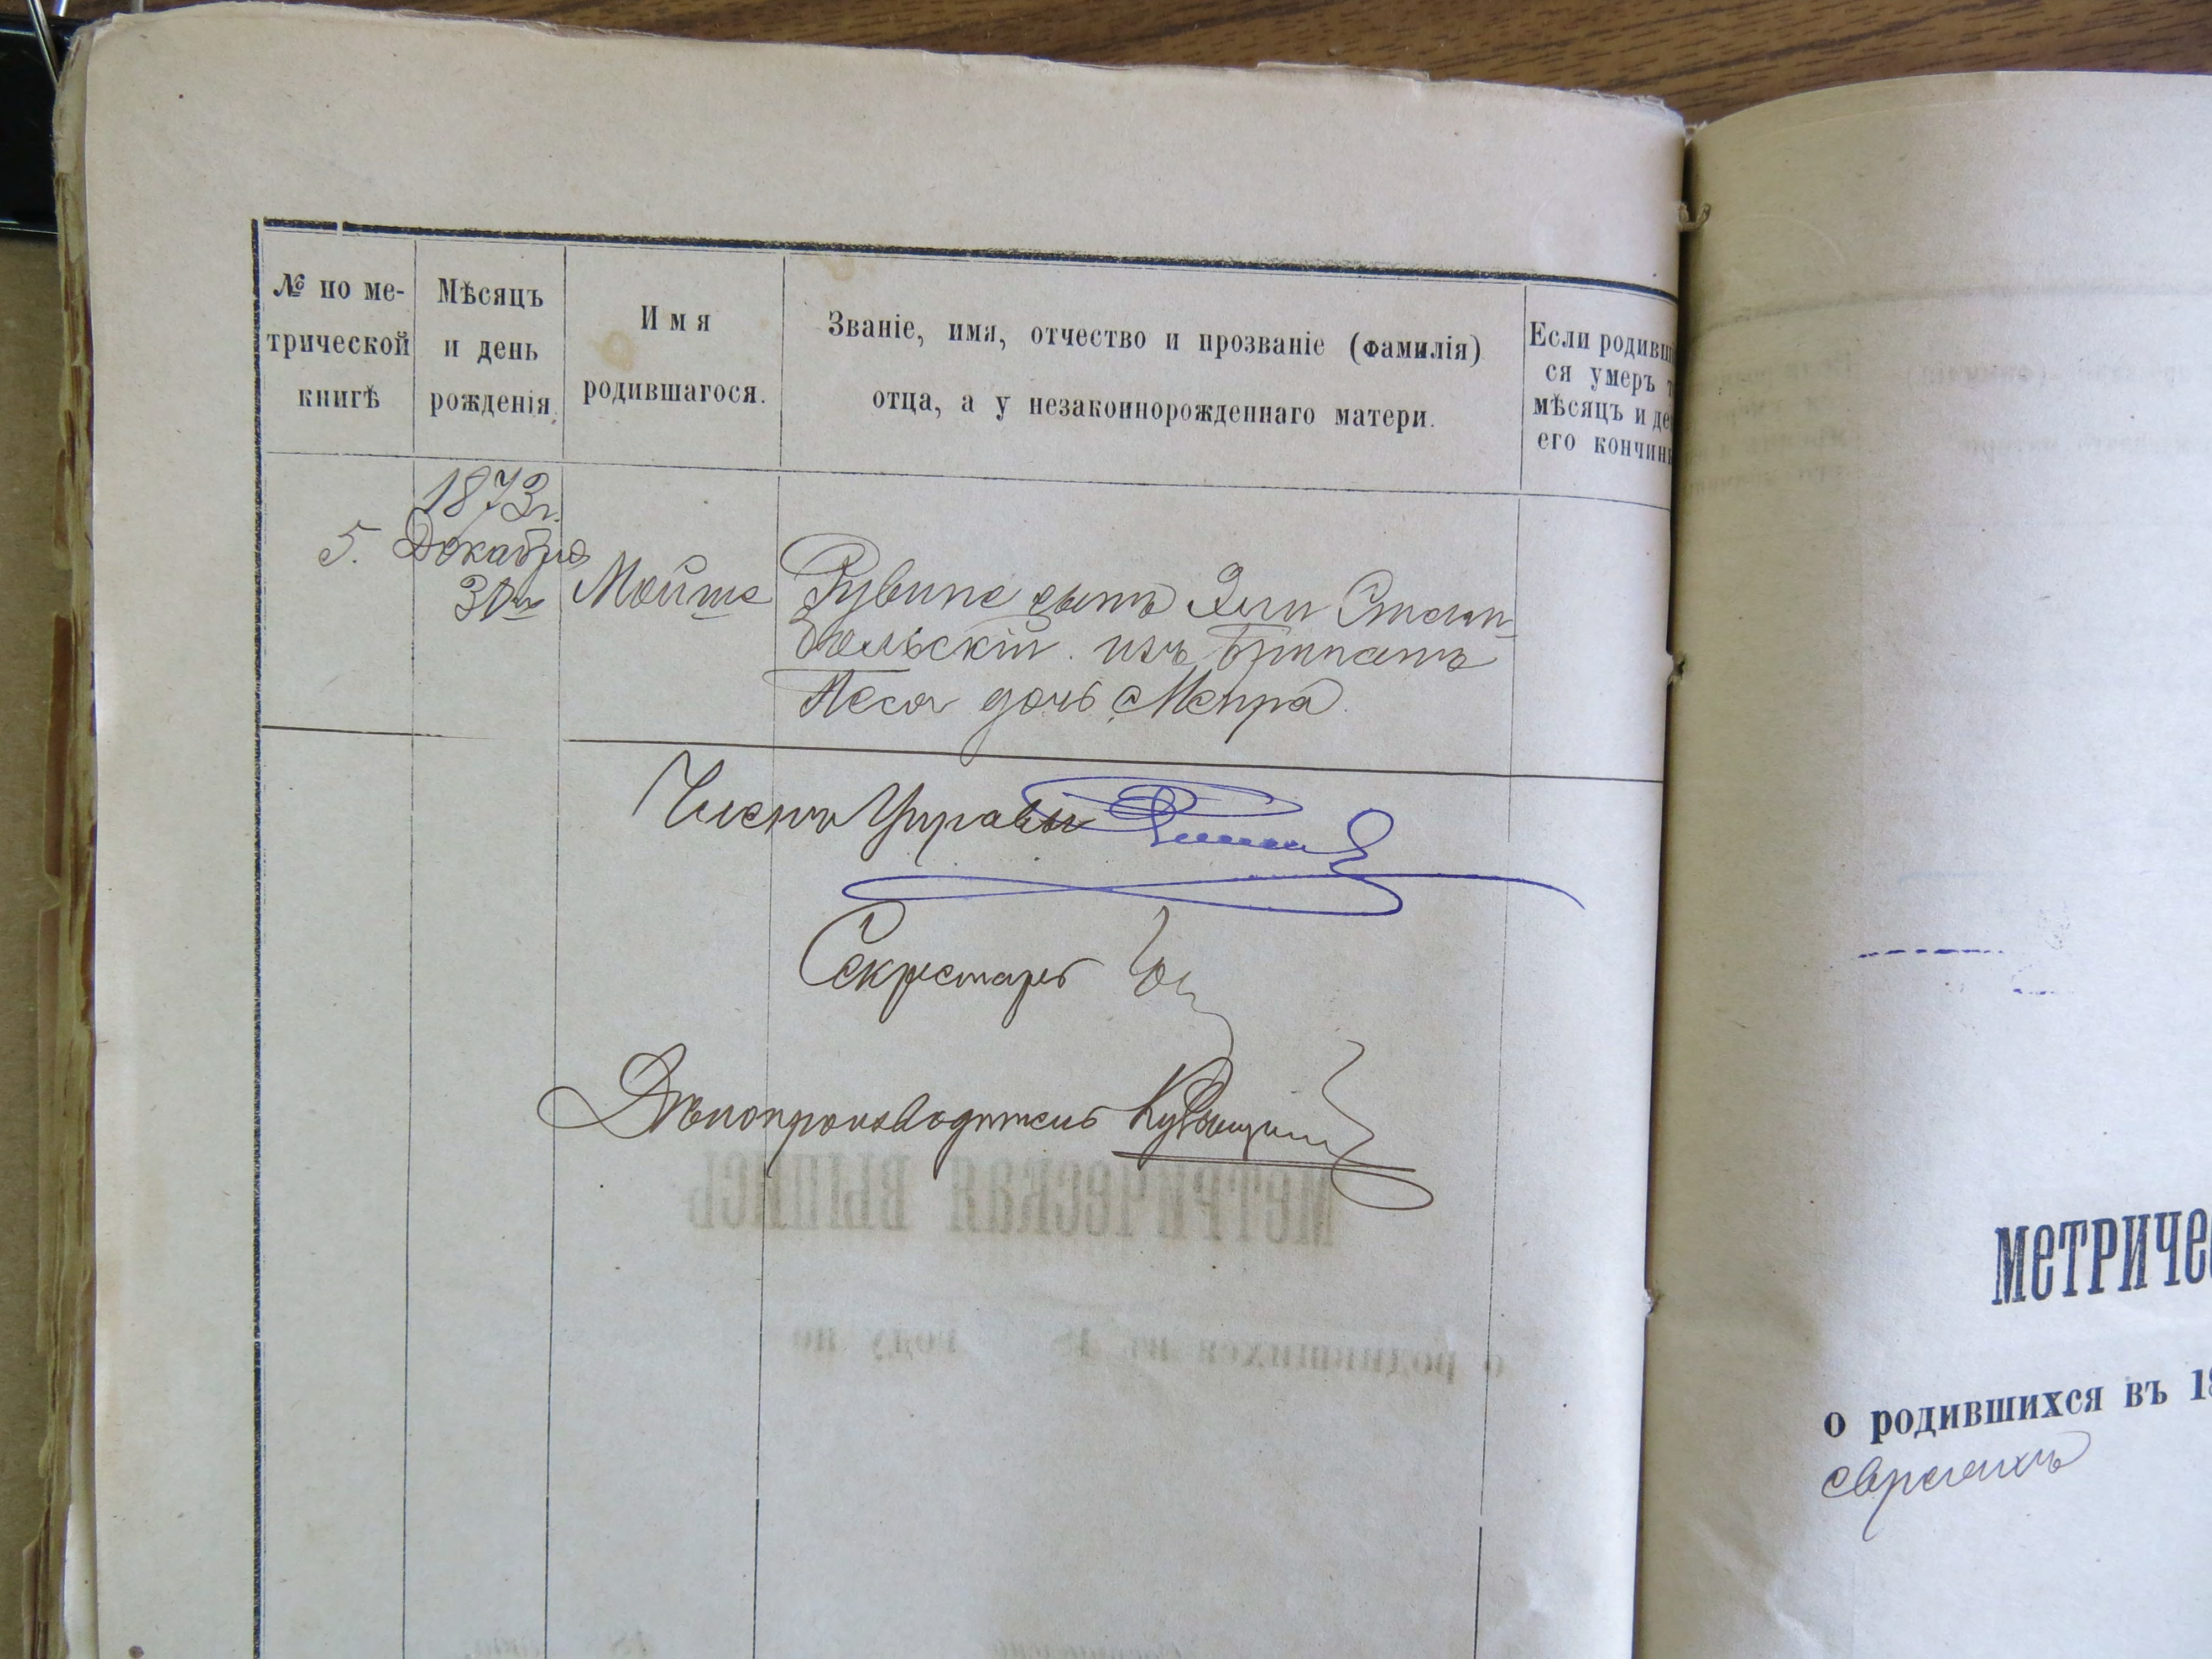 № по ме-
трической
книгѣ
Мѣсяцъ
и день
рожденія.
Имя
родившагося.
Званіе, имя, отчество и прозваніе (фамилія)
отца, а у незаконнорожденнаго матери.
Если родивш
ся умеръ т
мѣсяцъ и де
его кончин
5.
1873 г.
Декабря
30го
Мойше
Рувинъ сынъ Эли
из
Песя дочь Меира.
Членъ Управы
Секретарь
Дѣлопроизводитель
МЕТРИЧЕСКАЯ ВЫПИСЬ
о родившихся въ 18 году по
МЕТРИЧЕ
о родившихся въ 18
евреихъ